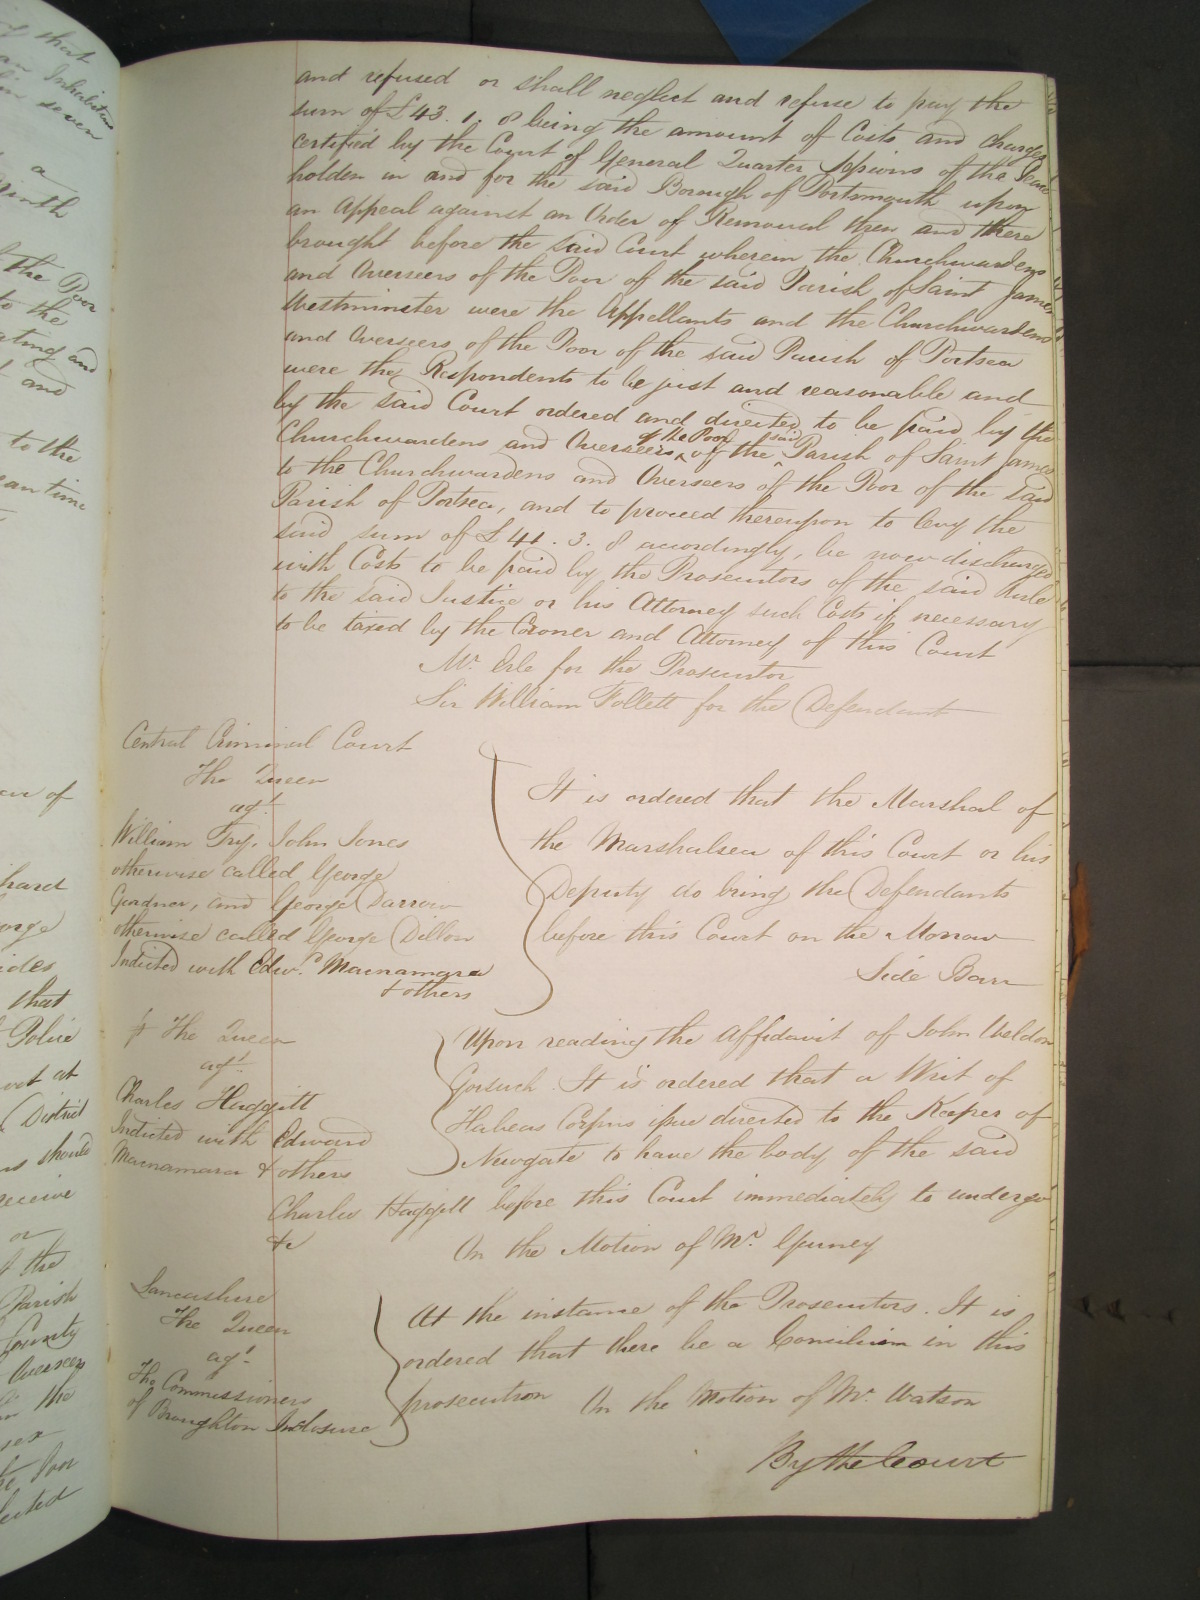 and refused or shall neglect and refuse to pay the
sum of £43. 1. 8 being the amount of Costs and charges
certified by the Court of General Quarter Sessions of the Peace
holden in and for the said Borough of Portsmouth upon
an Appeal against an Order of Removal then and there
brought before the said Court wherein the Churchwardens
and Overseers of the Poor of the said Parish of Saint James
Westminster were the Appellants and the Churchwardens
and Overseers of the Poor of the said Parish of Portsea
were the Respondents to be just and reasonable and
by the said Court ordered and directed to be paid by the
Churchwardens and Overseers of the Poor of the said Parish of Saint James
to the Churchwardens and Overseers of the Poor of the said
Parish of Portsea, and to proceed thereupon to levy the
said sum of £ 41. 3. 8 accordingly, be now discharged
with Costs to be paid by the Prosecutors of the said Rule
to the said Justice or his Attorney such Costs if necessary
to be taxed by the Coroner and Attorney of this Court
Mr. Erle for the Prosecutor
Sir William Follett for the Defendant
Central Criminal Court
The Queen
agt.
William Fry, John Jones
otherwise called George
Gardner, and George Darrow
otherwise called George Dillon
Indicted with Edwd. Macnamara
& others
It is ordered that the Marshal of
the Marshalsea of this Court or his
Deputy do bring the Defendants
before this Court on the Morrow
Side Barr
The Queen
agt.
Charles Haggitt
Indicted with Edward
Macnamara & others
Upon reading the Affidavit of John Weldon
Gorsuch. It is ordered that a Writ of
Habeas Corpus issue directed to the Keeper of
Newgate to have the body of the said
Charles Haggitt before this Court immediately to undergo
&c
On the Motion of Mr. Gurney
Lancashire
The Queen
agt.
The Commissioners
of Broughton Inclosure
At the instance of the Prosecutors. It is
ordered that there be a Concilium in this
prosecution On the Motion of Mr. Watson
By the Court